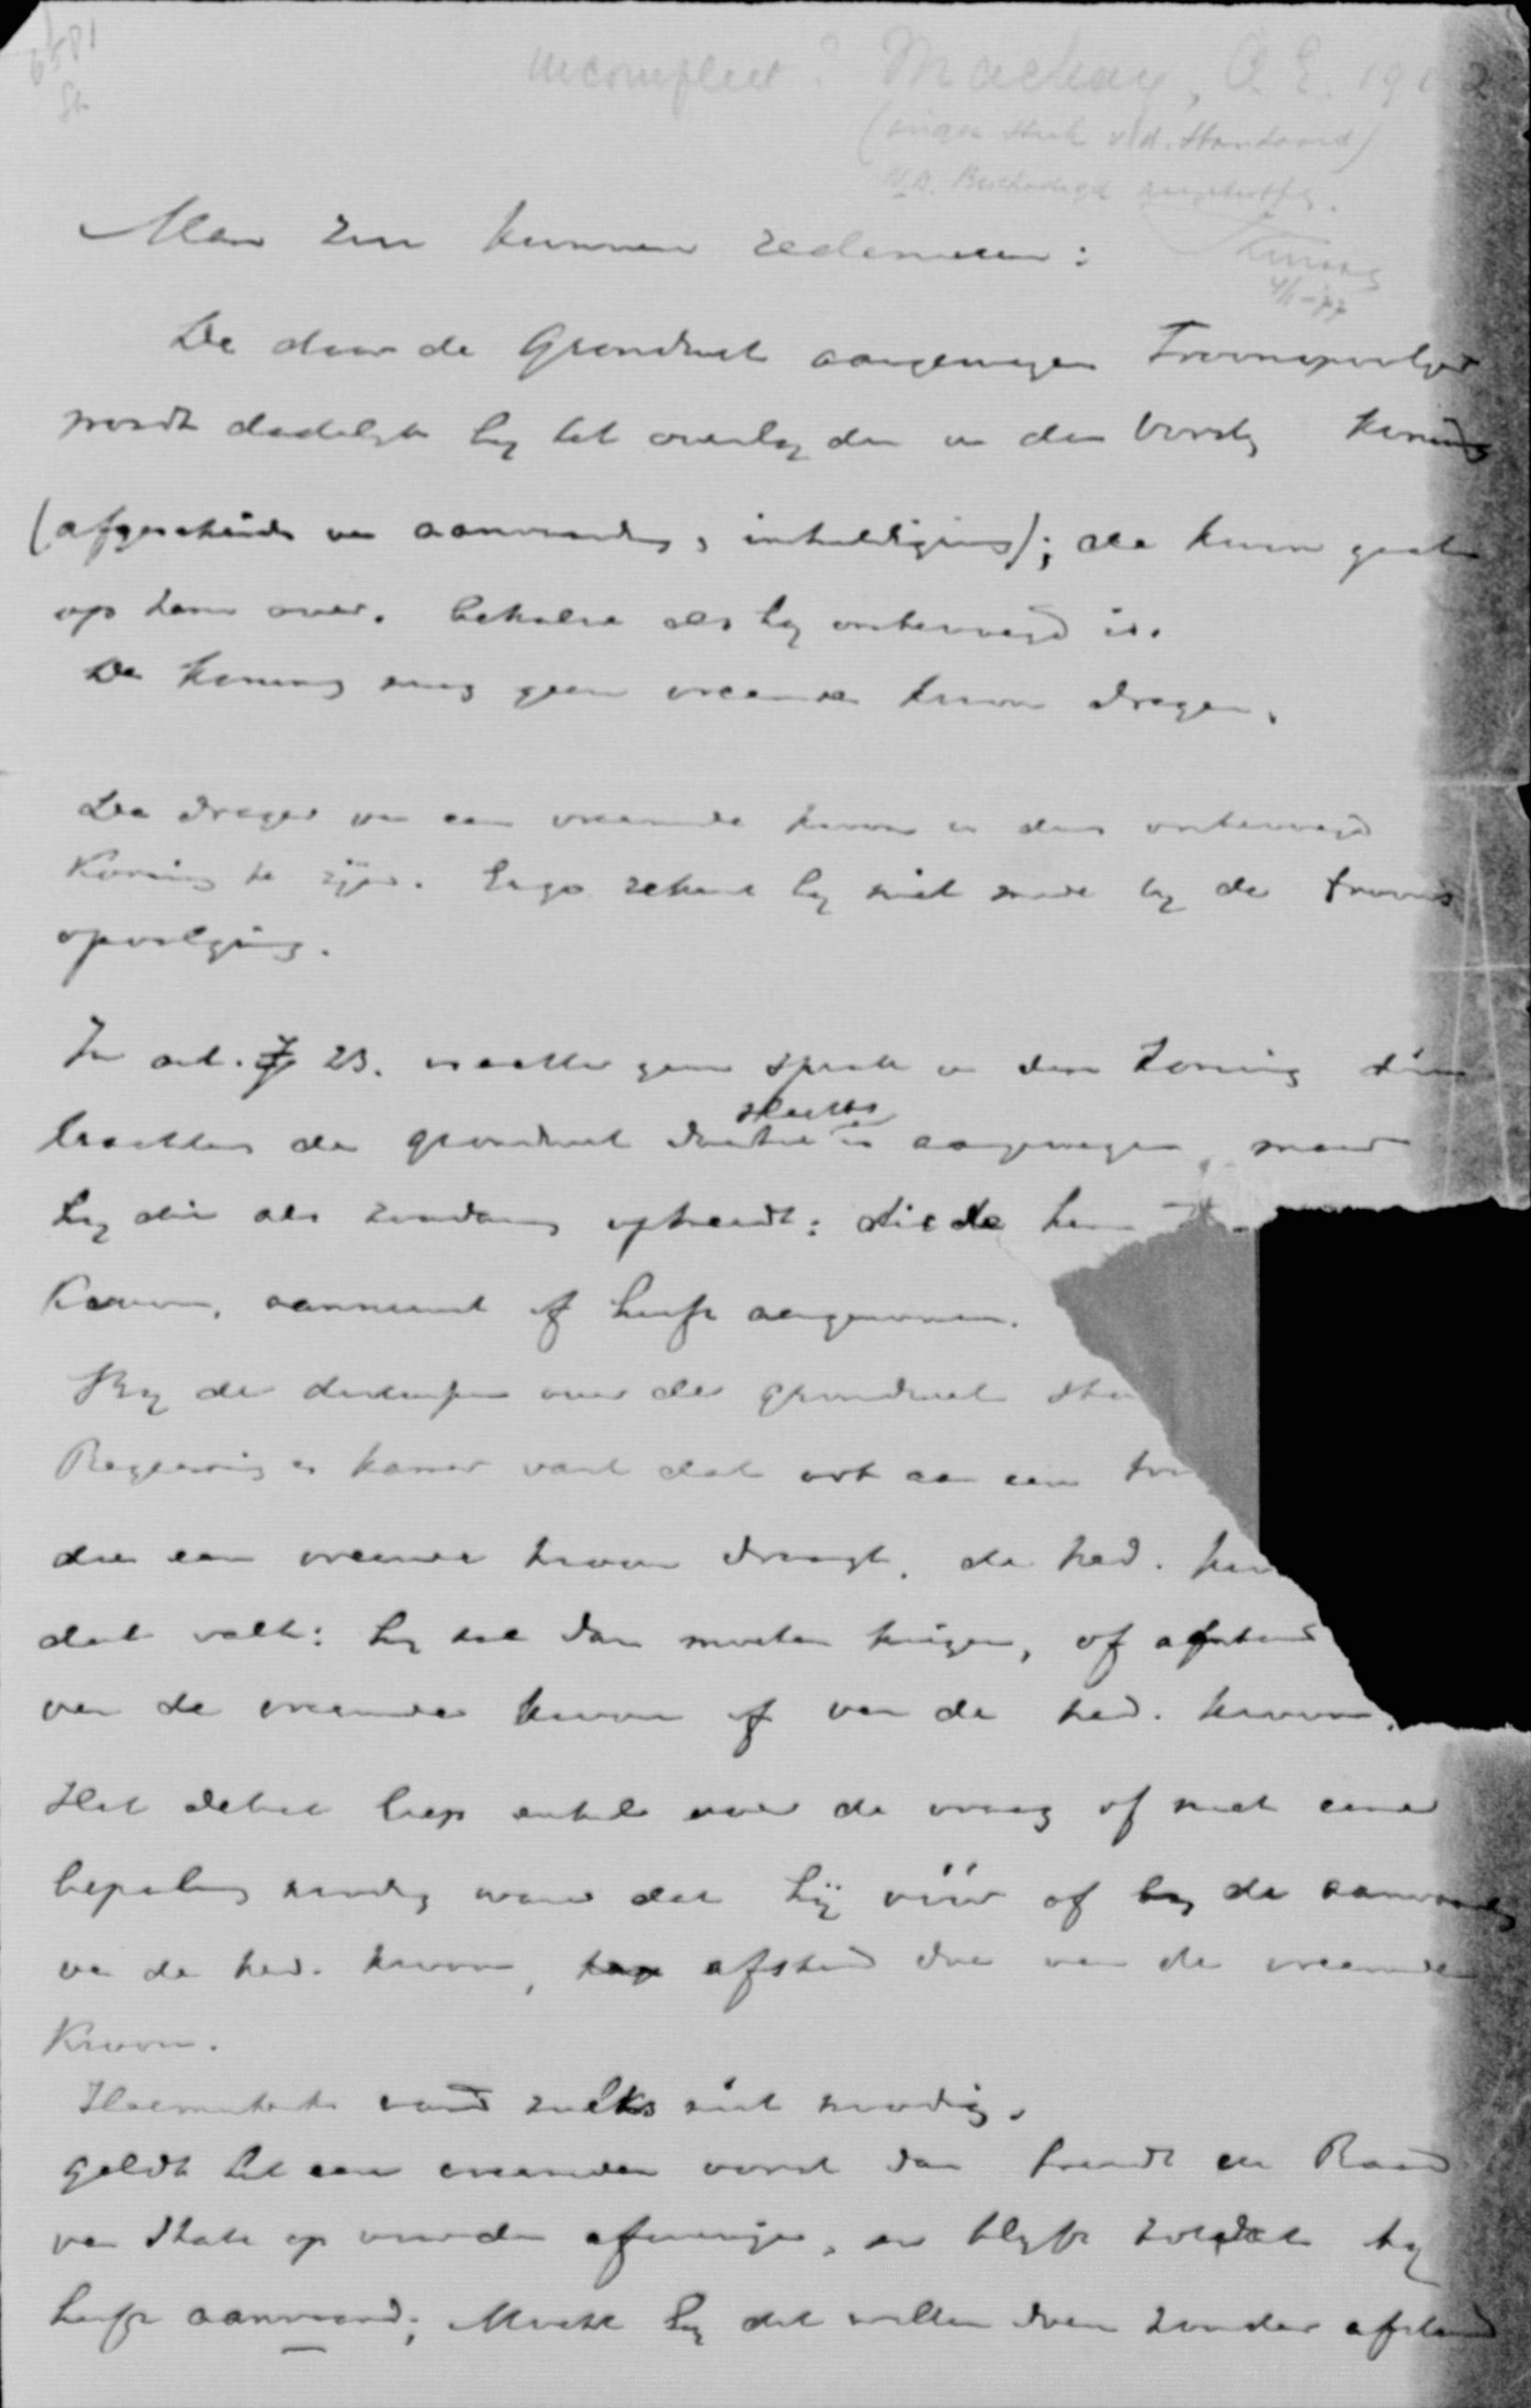 6581
incompleet? Mackay, A E. 19
v/d. Standaard)
N.B. Beschadigd
Men zou kunnen redeneeren:
De door de Grondwet aangewezen Troonopvolger
wordt dadelijk bij het overlijden v den vorst, Koning
(afgescheiden van aanvaarding, inhuldiging); de kroon gaat
op hem over. behalve als hij onbevoegd is.
De Koning mag geen vreemde kroon dragen.
De drager van een vreemde kroon is dus onbevoegd
Koning te zijn. Ergo rekent hij niet mede bij de troons
opvolging.
In art. 23. is echter geen sprake v den Koning die
krachtens de grondwet daartoe slechts is aangewezen, maar
hij die als zoodanig optreedt: die de hem
Kroon, aanneemt of heeft aangenomen.
Bij de over de grondwet
Regeering en Kamer vast dat ook aan een
die een vreemde kroon draagt, de Ned.
dat valt: hij zal dan moeten kiezen, of afstand
van de vreemde kroon of van de Ned. kroon.
Het debat liep enkel over de vraag of niet eene
bepaling noodig was dat hij vóór of bij de aanvaarding
van de Ned. kroon, afstand doe van de vreemde
Kroon.
Heemskerk vond zulks niet noodig.
geldt het een vreemden vorst dan treedt de Raad
van State op en blijft totdat hij
heeft aanvaard; Mocht hij dat willen doen zonder afstand